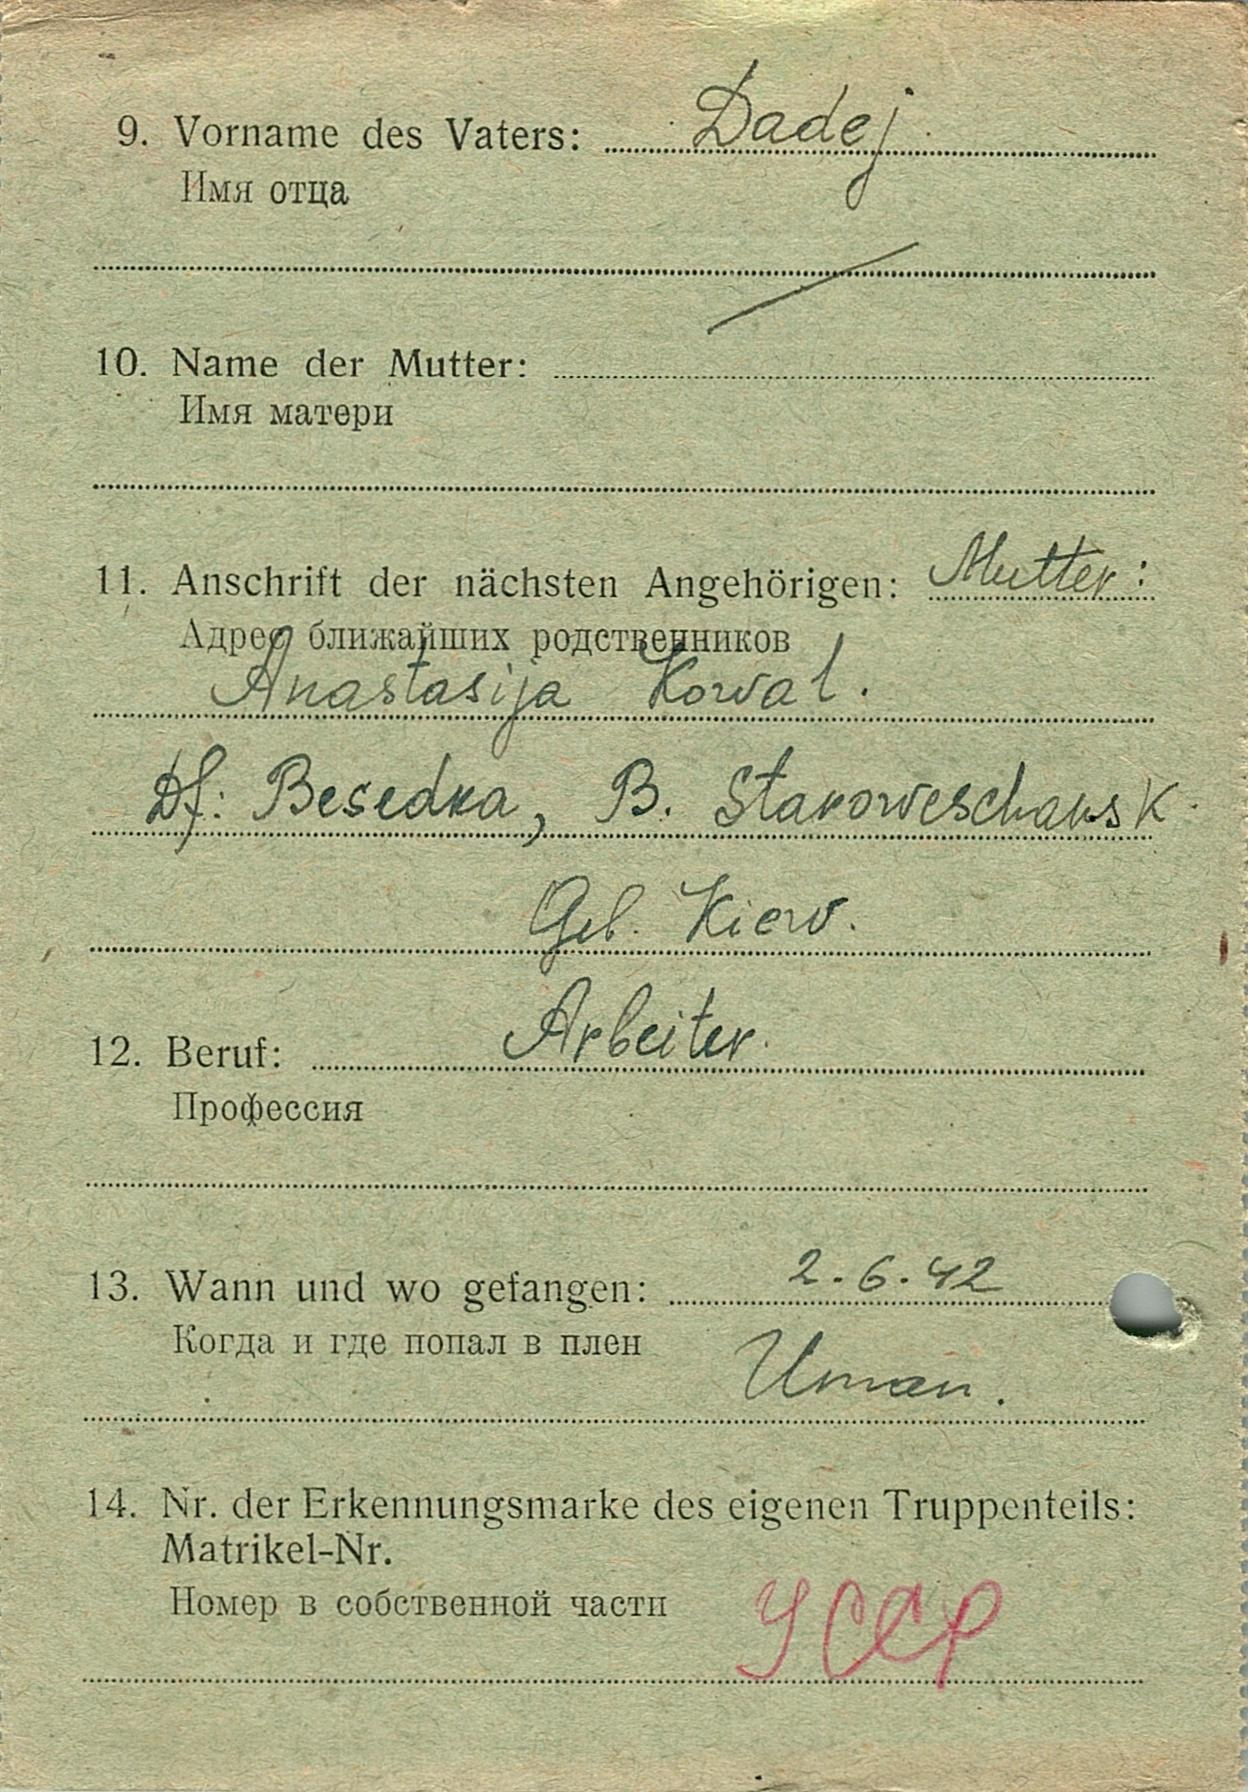 9. Vorname des Vaters: Dadej.
Имя отца
10. Name der Mutter:
Имя матери
11. Anschrift der nächsten Angehörigen: Mutter:
Адрес ближайших родственников
Anastasija Kowal.
Df: Besedka, B. Staroweschansk.
Geb. Kiew.
12. Beruf: Arbeiter.
Профессия
13. Wann und wo gefangen: 2.6.42
Когда и где попал в плен
Uman.
14. Nr. der Erkennungsmarke des eigenen Truppenteils:
Matrikel-Nr.
Номер в собственной части
УССР